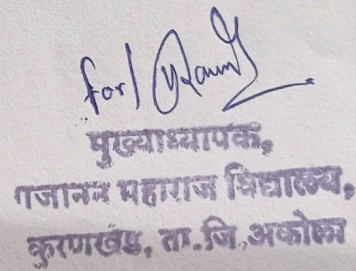 for/
मुख्याध्यापक,
गजानन महाराज विद्यालय,
कुरणखेड, ता.जि.अकोला